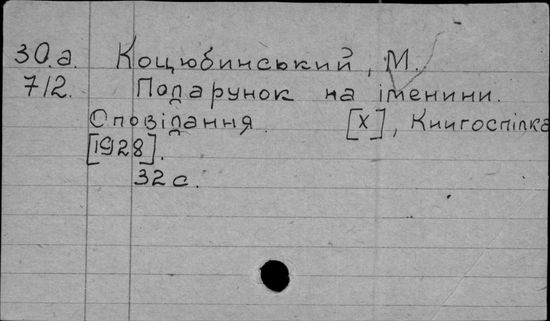 30.а. Коцюбинський, М.
7/2. Подарунок на іменини.
Оповідання [Х], Книгоспілка
[1928].
32 с.